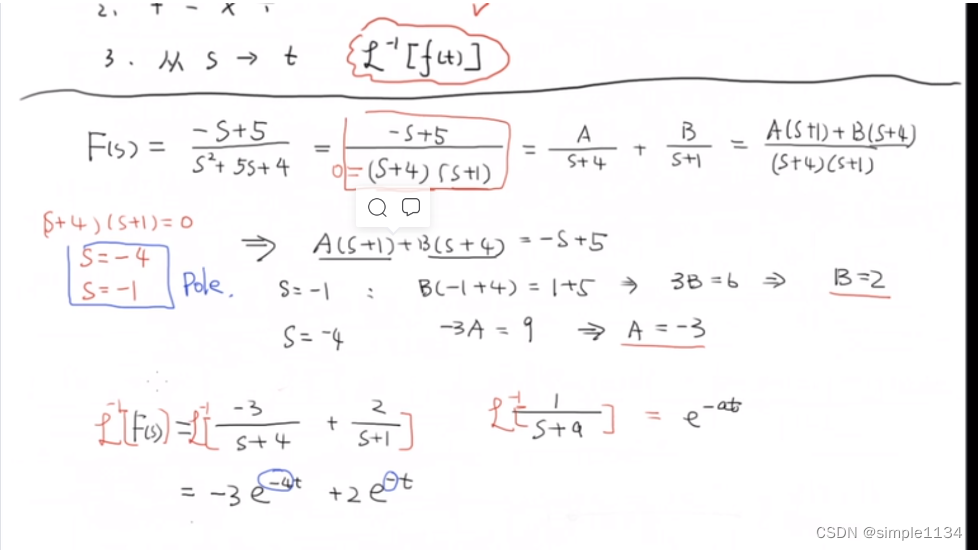 2.
3. 从 s → t ℒ⁻¹[f(t)]
F(s) = (-s+5)/(s²+5s+4) = (-s+5)/((s+4)(s+1)) = A/(s+4) + B/(s+1) = (A(s+1)+B(s+4))/((s+4)(s+1))
0=
(s+4)(s+1)=0
s=-4
s=-1
Pole.
⇒ A(s+1)+B(s+4) = -s+5
s=-1 : B(-1+4) = 1+5 → 3B=6 ⇒ B=2
s=-4 -3A = 9 ⇒ A = -3
ℒ⁻¹[F(s)] = ℒ⁻¹[-3/(s+4) + 2/(s+1)]
ℒ⁻¹[1/(s+a)] = e^(-at)
= -3e^(-4t) +2e^(-t)
CSDN @simple1134